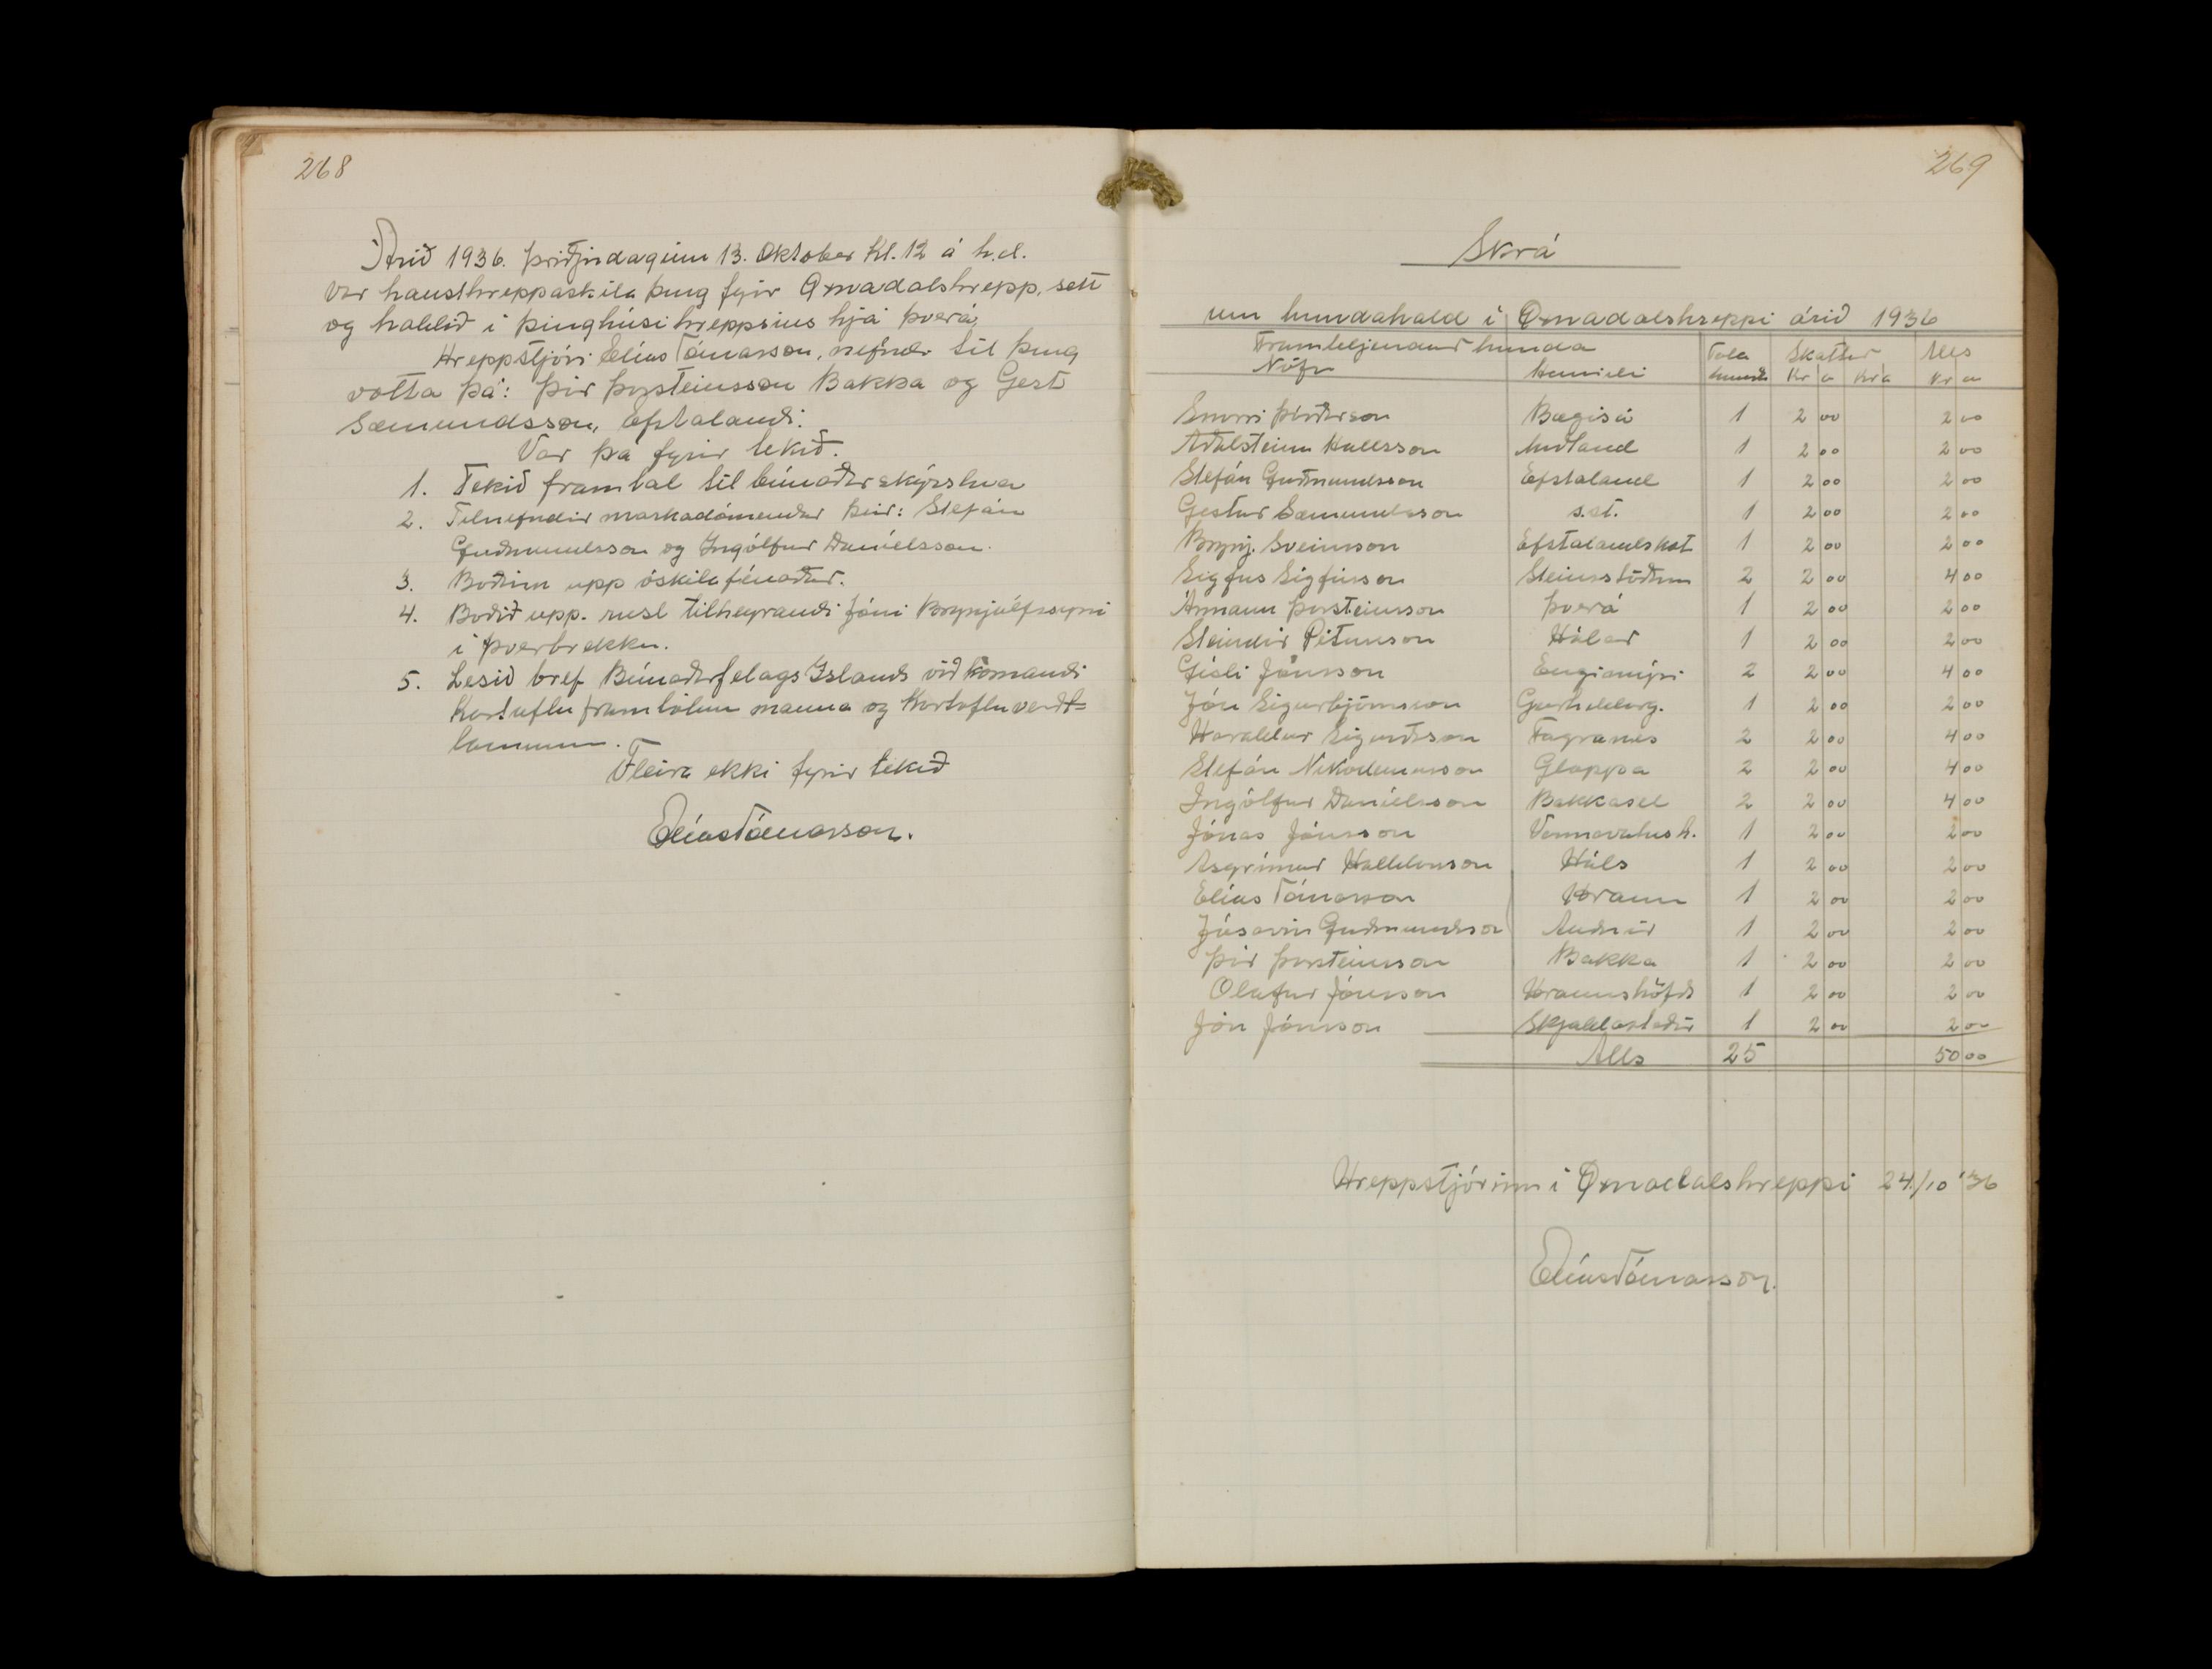 268
Árið 1936. þriðjudaginn 13. Oktober Kl. 12 á h.d.
var hausthreppaskila þing fyrir Öxnadalshrepp, sett
og haldið i þinghúsi hreppsins hjá þverá.
Hreppstjóri Elías Tómasson, nefndi til þing
votta þá: Þór Þorsteinsson Bakka og Gest
Sæmundsson, Efstalandi.
Var þá fyrir tekið.
1. Tekið framtal til búnaðarskýrslna
2. Tilnefndir markadómendur þeir: Stefán
Guðmundsson og Ingólfur Daníelsson.
3. Boðinn upp óskila fénaður.
4. Boðið upp. rusl tilheyrandi Jóni Brynjúlfssyni
i Þverbrekku.
5. Lesið bref Búnaðarfelags Islands viðkomandi
Kartuflu framtölum manna og Kartoflu verdt=
laununum.
Fleira ekki fyrir tekið
Elías Tómasson.
269
Skrá
um hundahald i Öxnadalshreppi árið 1936
Framteljendur hunda Tala Skattur Alls
Nöfn Heimili hunda Kr a Kr a Kr a
Snorri Þórðarson Bægisá 1 2 00 2 00
Aðalsteinn Hallsson Auðland 1 2 00 2 00
Stefán Guðmundsson Efstaland 1 2 00 2 00
Gestur Sæmundsson s.st. 1 2 00 2 00
Brynj. Sveinsson Efstalandskot 1 2 00 2 00
Sigfus Sigfússon Steinsstöðum 2 2 00 4 00
Ármann Þorsteinsson Þverá 1 2 00 2 00
Steindór Pétursson Hólar 1 2 00 2 00
Gísli Jónsson Engimýri 2 2 00 4 00
Jón Sigurbjörnsson Geirhildarg. 1 2 00 2 00
Haraldur Sigurðsson Fagranes 2 2 00 4 00
Stefán Nikodemusson Gloppa 2 2 00 4 00
Ingólfur Daníelsson Bakkasel 2 2 00 4 00
Jónas Jónsson Varmavatnsh. 1 2 00 2 00
Asgrímur Halldorsson Háls 1 2 00 2 00
Elías Tómasson Hraun 1 2 00 2 00
Jósavin Guðmundsson Auðnir 1 2 00 2 00
Þór Þorsteinsson Bakka 1 2 00 2 00
Olafur Jónsson Hraunshöfði 1 2 00 2 00
Jón Jónsson Skjaldastaðir 1 2 00 2 00
Alls 25 50 00
Hreppstjórinn i Öxnadalshreppi 24./10 '36
Elías Tómasson.